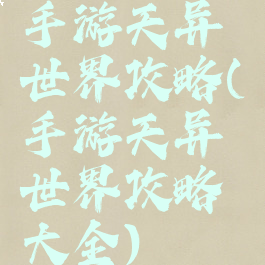 手游天异
世界攻略(
手游天异
世界攻略
大全)